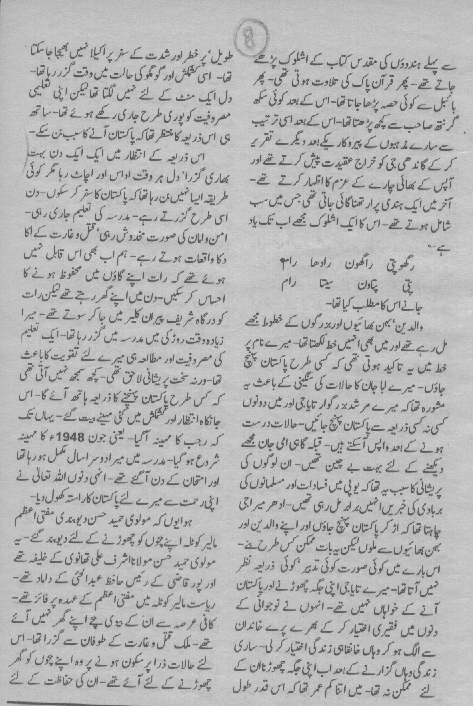 8
سے پہلے ہندوؤں کی مقدس کتاب کے اشلوک پڑھے
جاتے تھے۔ پھر قرآن پاک کی تلاوت ہوتی تھی۔ پھر
بائبل سے کوئی حصہ پڑھا جاتا تھا۔ اس کے بعد کوئی سکھ
گرنتھ صاحب سے کچھ پڑھتا تھا۔ اس کے بعد اسی ترتیب
سے سارے مذہبوں کے پیروکار یکے بعد دیگرے تقریر
کر کے گاندھی جی کو خراج عقیدت پیش کرتے تھے اور
آپس کے بھائی چارے کے عزم کا اظہار کرتے تھے۔
آخر میں ایک ہندی پرارتھنا گائی جاتی تھی جس میں سب
شامل ہوتے تھے۔ اس کا ایک اشلوک مجھے اب تک یاد
ہے۔
رگھوپتی راگھون رادھا رام
پتی پتاون سیتا رام
جانے اس کا مطلب کیا تھا۔
والدین، بہن بھائیوں اور بزرگوں کے خطوط مجھے
مل رہے تھے اور میں بھی انہیں خط لکھتا تھا۔ میرے نام ہر
خط میں یہ تاکید ہوتی تھی کہ کسی طرح پاکستان پہنچ
جاؤں۔ میرے ابا جان کا حالات کی سنگینی کے باعث یہ
مشورہ تھا کہ میرے مرشد بزرگوار تایا جی اور میں دونوں
کسی نہ کسی ذریعہ سے پاکستان پہنچ جائیں۔ حالات درست
ہونے کے بعد واپس آسکتے ہیں۔ قبلہ گاہی امی جان مجھے
دیکھنے کے لئے بہت بے چین تھیں۔ ان لوگوں کی
پریشانی کا سبب یہ تھا کہ یوپی میں فسادات اور مسلمانوں کی
بربادی کی خبریں انہیں برابر مل رہی تھیں۔ ادھر میرا جی
چاہتا تھا کہ اڑ کر پاکستان پہنچ جاؤں اور اپنے والدین اور
بہن بھائیوں سے ملوں لیکن یہ بات ممکن کس طرح بنے۔
اس بارے میں کوئی صورت کوئی تدبیر، کوئی ذریعہ نظر
نہیں آتا تھا۔ میرے تایا جی اپنی جگہ چھوڑنے اور پاکستان
آنے کے خواہاں نہیں تھے۔ انہوں نے نوجوانی کے
دنوں میں فقیری اختیار کر کے بھرے پرے خاندان
سے الگ ہو کر وہاں خانقاہی زندگی اختیار کر لی۔ ساری
زندگی وہاں گزارنے کے بعد اب اپنی جگہ چھوڑنا ان کے
لئے ممکن نہ تھا۔ میں اتنا کم عمر تھا کہ اس قدر طول
طویل، پر خطر اور شدت کے سفر پر اکیلا نہیں بھیجا جاسکتا
تھا۔ اسی کشمکش اور گومگو کی حالت میں وقت گزر رہا تھا۔
دل ایک منٹ کے لئے نہیں لگتا تھا لیکن اپنی تعلیمی
مصروفیت کو پوری طرح جاری رکھے ہوئے تھا۔ ساتھ
ہی اس ذریعہ کا منتظر تھا کہ پاکستان آنے کا سبب بن سکے۔
اس ذریعہ کے انتظار میں ایک ایک دن بہت
بھاری گزرا، دل ہر وقت اداس اور اچاٹ رہا مگر کوئی
طریقہ ایسا نہیں بن رہا تھا کہ پاکستان کا سفر کر سکوں۔ دن
اسی طرح گزرتے رہے۔ مدرسہ کی تعلیم جاری رہی۔
امن و امان کی صورت مخدوش رہی، قتل و غارت کے اکا
دکا واقعات ہوتے رہے۔ ہم اب بھی اس قابل نہیں
ہوئے تھے کہ رات اپنے گاؤں میں محفوظ ہونے کا
احساس کر سکیں۔ دن میں اپنے گھر رہتے تھے لیکن رات
کو درگاہ شریف پیران کلیر میں جا کر سوتے تھے۔ میرا
زیادہ وقت روز کی میں مدرسہ میں گزر رہا تھا۔ ایک تعلیم
کی مصروفیت اور مطالعہ ہی میرے لئے تقویت کا باعث
تھا۔ ورنہ سخت پریشانی لاحق تھی۔ کچھ سمجھ نہیں آتی تھی
کہ کس طرح پاکستان پہنچنے کا ذریعہ ہاتھ آئے گا۔ اس
جانکاہ انتظار اور کشمکش میں کئی مہینے بیت گئے۔ یہاں تک
کہ رجب کا مہینہ آگیا۔ یعنی جون 1948ء کا مہینہ
شروع ہو گیا۔ مدرسہ میں میرا دوسرا سال مکمل ہو رہا تھا
اور امتحان کے دن آگئے تھے۔ انہی دنوں اللہ تعالی نے
اپنی رحمت سے میرے لئے پاکستان کا راستہ کھول دیا۔
ہوا یوں کہ مولوی حمید حسن دیوبندی مفتی اعظم
مالیر کوٹلہ اپنے بچوں کو چھوڑنے کے لئے دیوبند گئے۔ یہ
مولوی حمید حسن مولانا اشرف علی تھانوی کے خلیفہ تھے
اور پور قاضی کے رئیس حافظ عبدالغنی کے داماد تھے۔
ریاست مالیر کوٹلہ میں مفتی اعظم کے عہدہ پر فائز تھے۔
کافی عرصہ سے ان کے بیوی بچے اپنے گھر نہیں آئے
تھے۔ ملک قتل و غارت کے طوفان سے گزرا تھا۔ اس
لئے حالات ذرا پر سکون ہونے پر وہ اپنے بچوں کو گھر
چھوڑنے کے لئے آئے تھے۔ ان کی حفاظت کے لئے